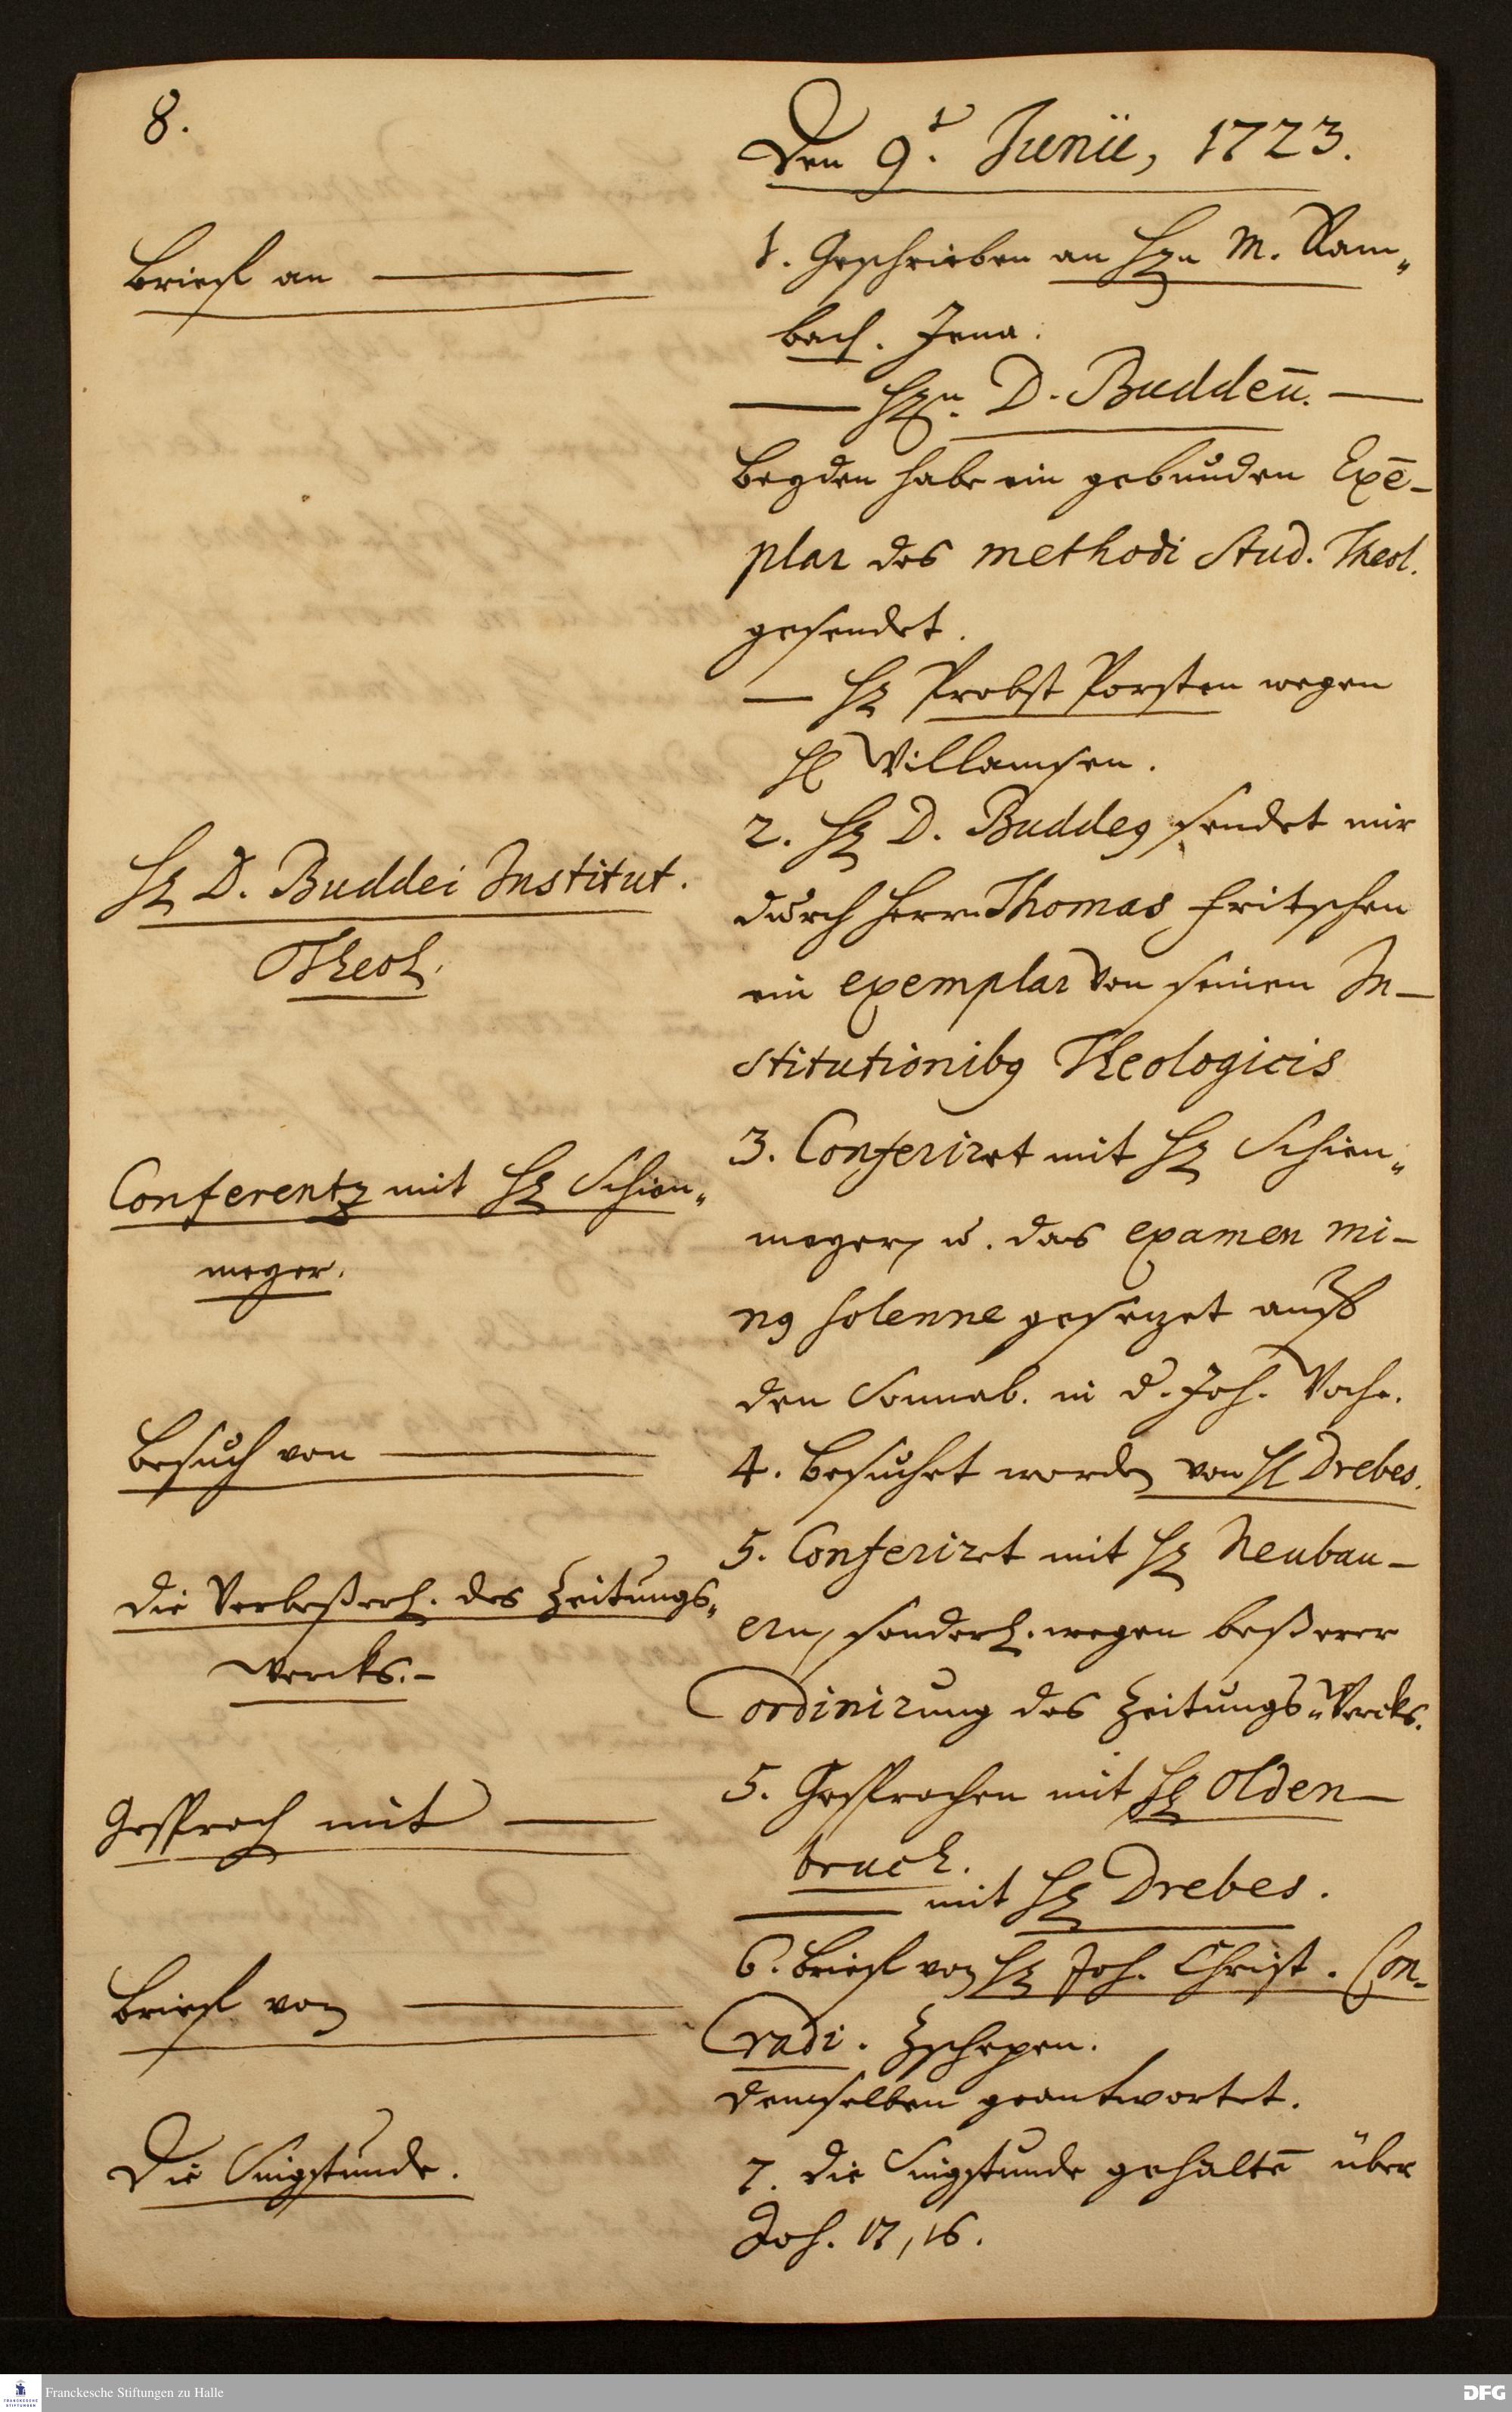 8.
Den 9.t Junii, 1723.
Brieff an
1. Geschrieben an Hrn M. Ram„
bach. Jena.
Hrn. D. Buddeū.
Beyden habe ein gebunden Exē-
plar des methodi Stud. Theol.
gesendet.
— Hr Probst Porsten wegen
H Villamsen.
Hr D. Buddei Institut.
Theol.
2. Hr D. Buddeq sendet mir
durch Herrn Thomas Fritschen
ein exemplar von seinen In-
stitutionibq Theologicis
Conferentz mit Hr Schien„
meyer.
3. Conferiret mit Hr Schien„
meyer, u. das examen mi-
nq solenne gesezet auff
den Sonnab. in d. Joh. Woche.
Besuch von
4. Besuchet worden von H Drebes.
Die Verbeßerl. des Zeitungs„
Wercks.-
5. Conferiret mit Hr Neubau-
ern, sonderl. wegen beßerer
ordinirung des Zeitungs„Wercks.
Gespräch mit
5. Gesprochen mit Hr Olden-
bruch.
mit Hr Drebes.
Brieff von
6. Brieff von Hr Joh. Christ. Con-
radi. Zschepen.
demselben geantwortet.
Die Singstunde.
7. Die Singstunde gehaltē über
Joh. 17, 16.
Franckesche Stiftungen zu Halle
DFG